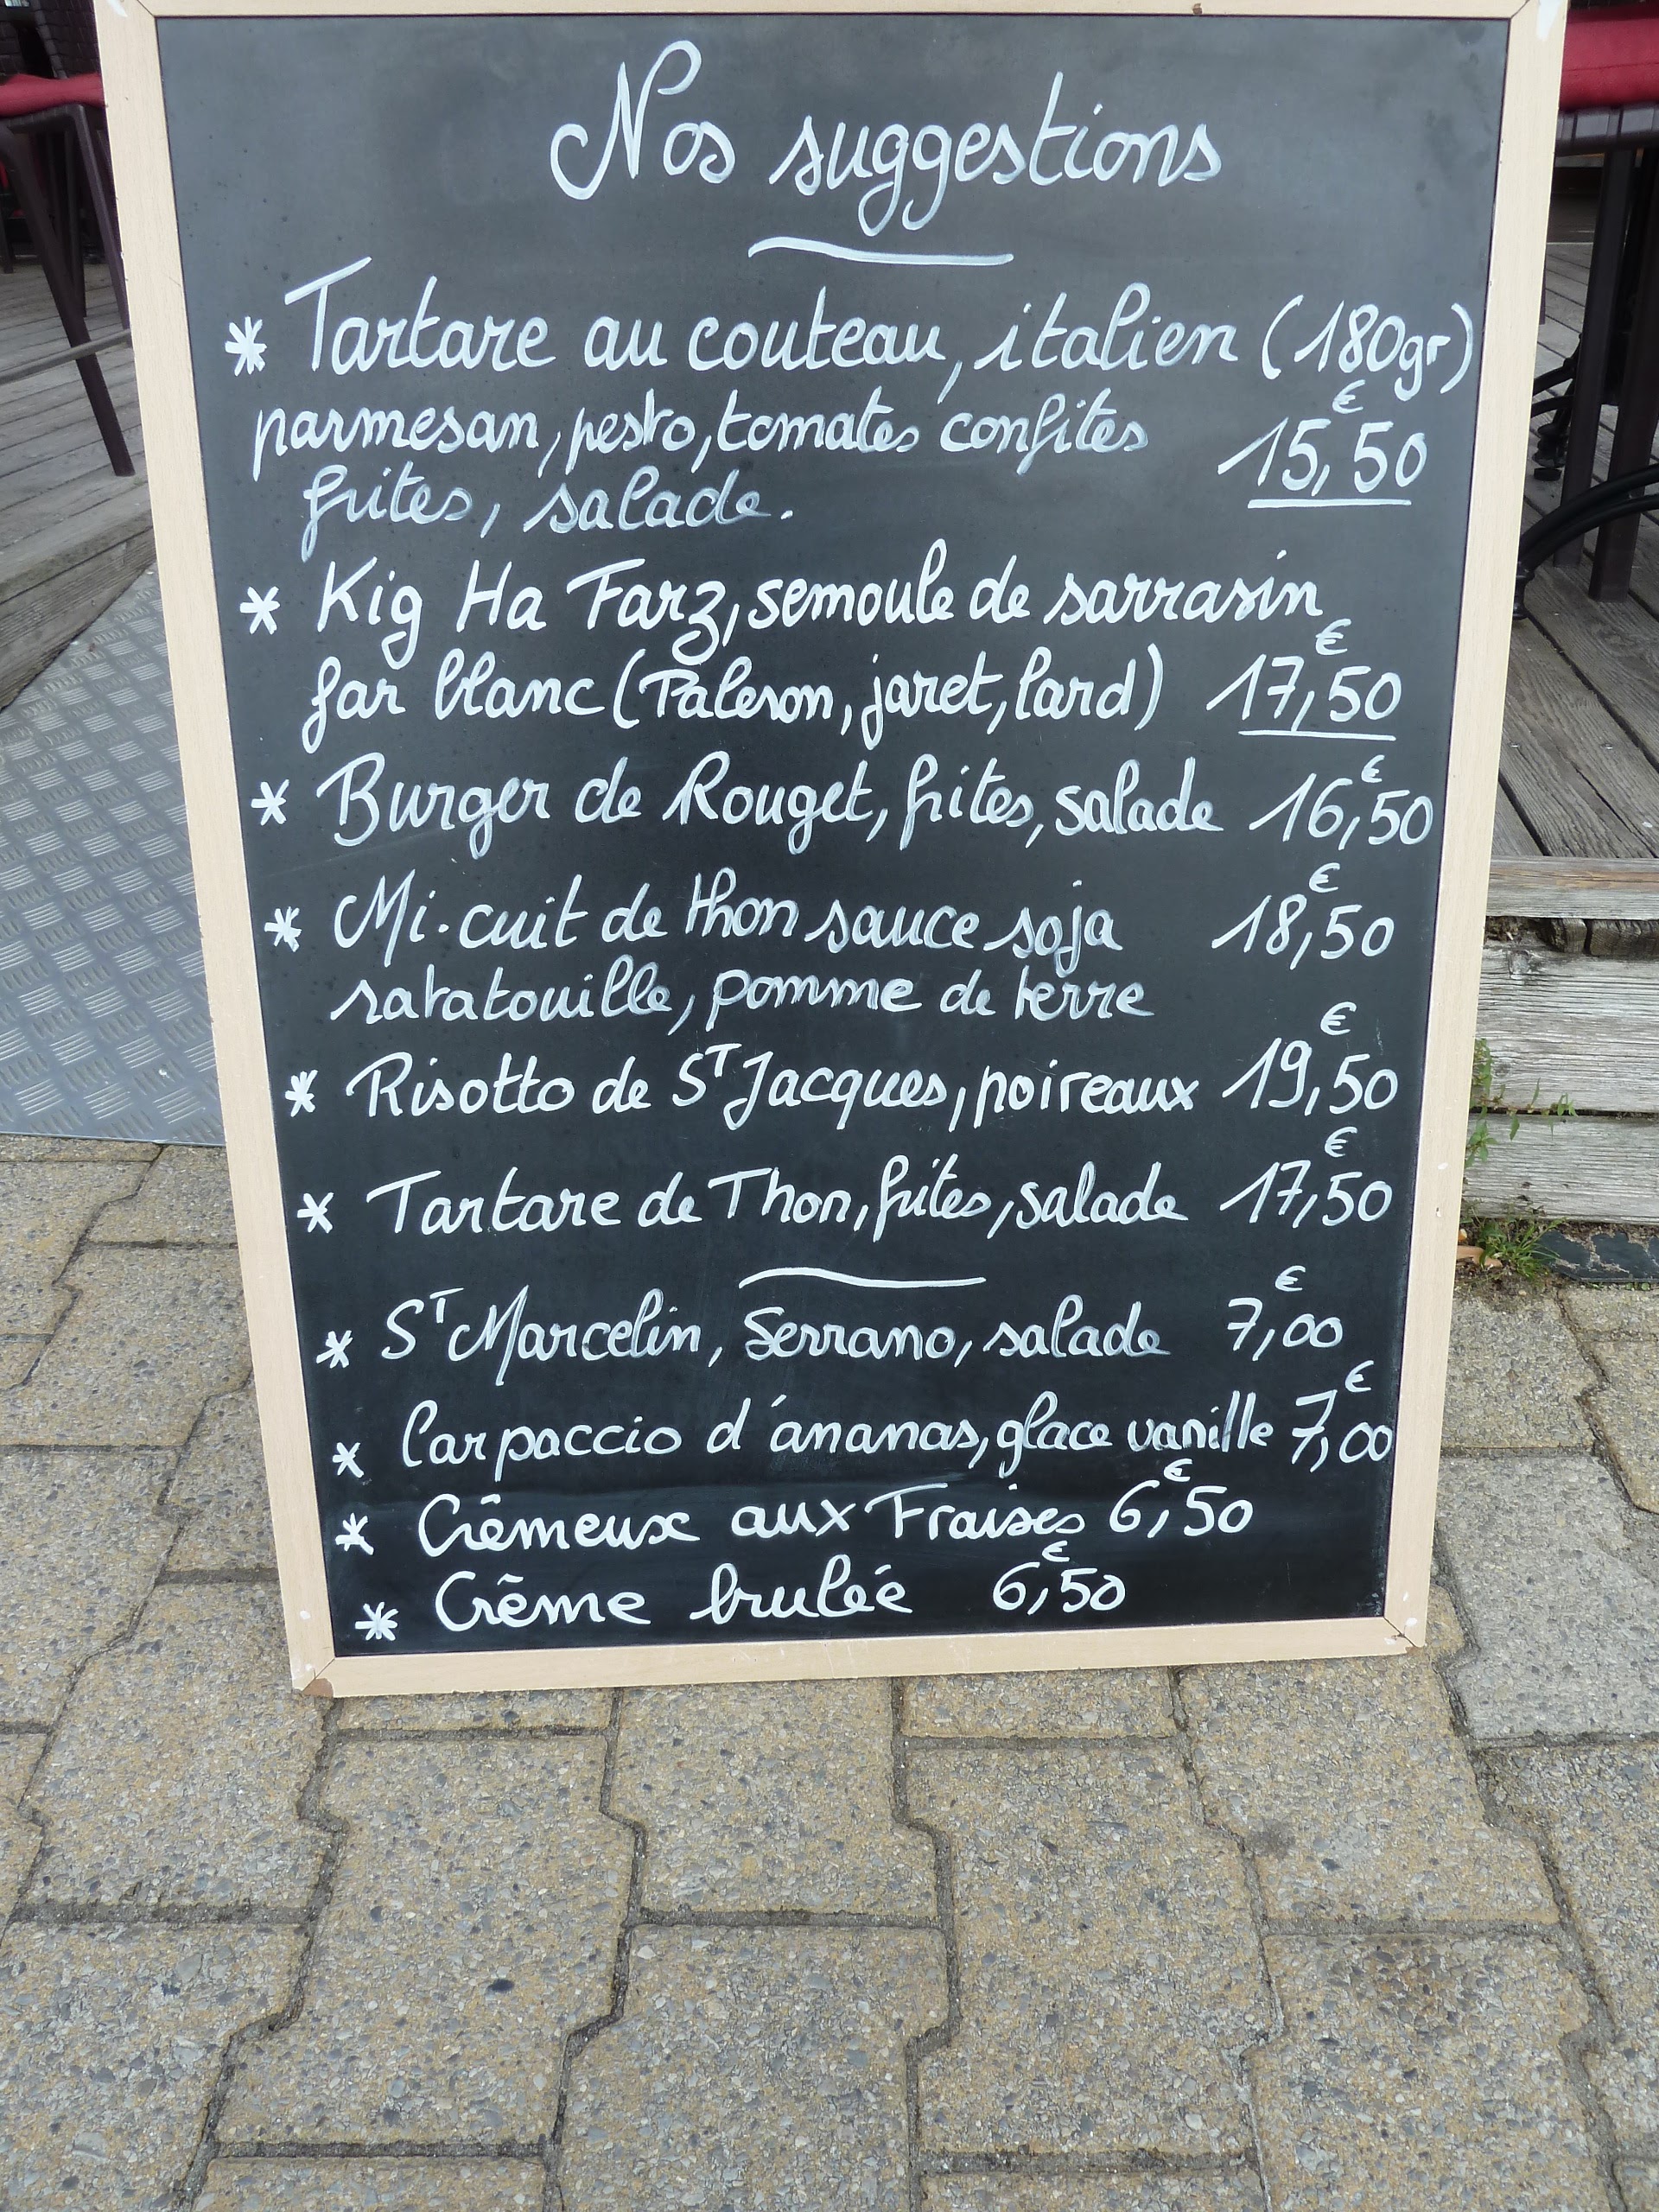 Nos suggestions
* Tartare au couteau, italien (180gr)
parmesan, pesto, tomates confites 15,50 €
frites, salade.
* Kig Ha Farz, semoule de sarrasin
far blanc (Paleron, jaret, lard) 17,50 €
* Burger de Rouget, frites, salade 16,50 €
* Mi-cuit de thon sauce soja 18,50 €
ratatouille, pomme de terre
* Risotto de ST Jacques, poireaux 19,50 €
* Tartare de Thon, frites, salade 17,50 €
* ST Marcelin, Serrano, salade 7,00 €
* Carpaccio d'ananas, glace vanille 7,00 €
* Crêmeux aux Fraises 6,50 €
* Crême brulée 6,50 €